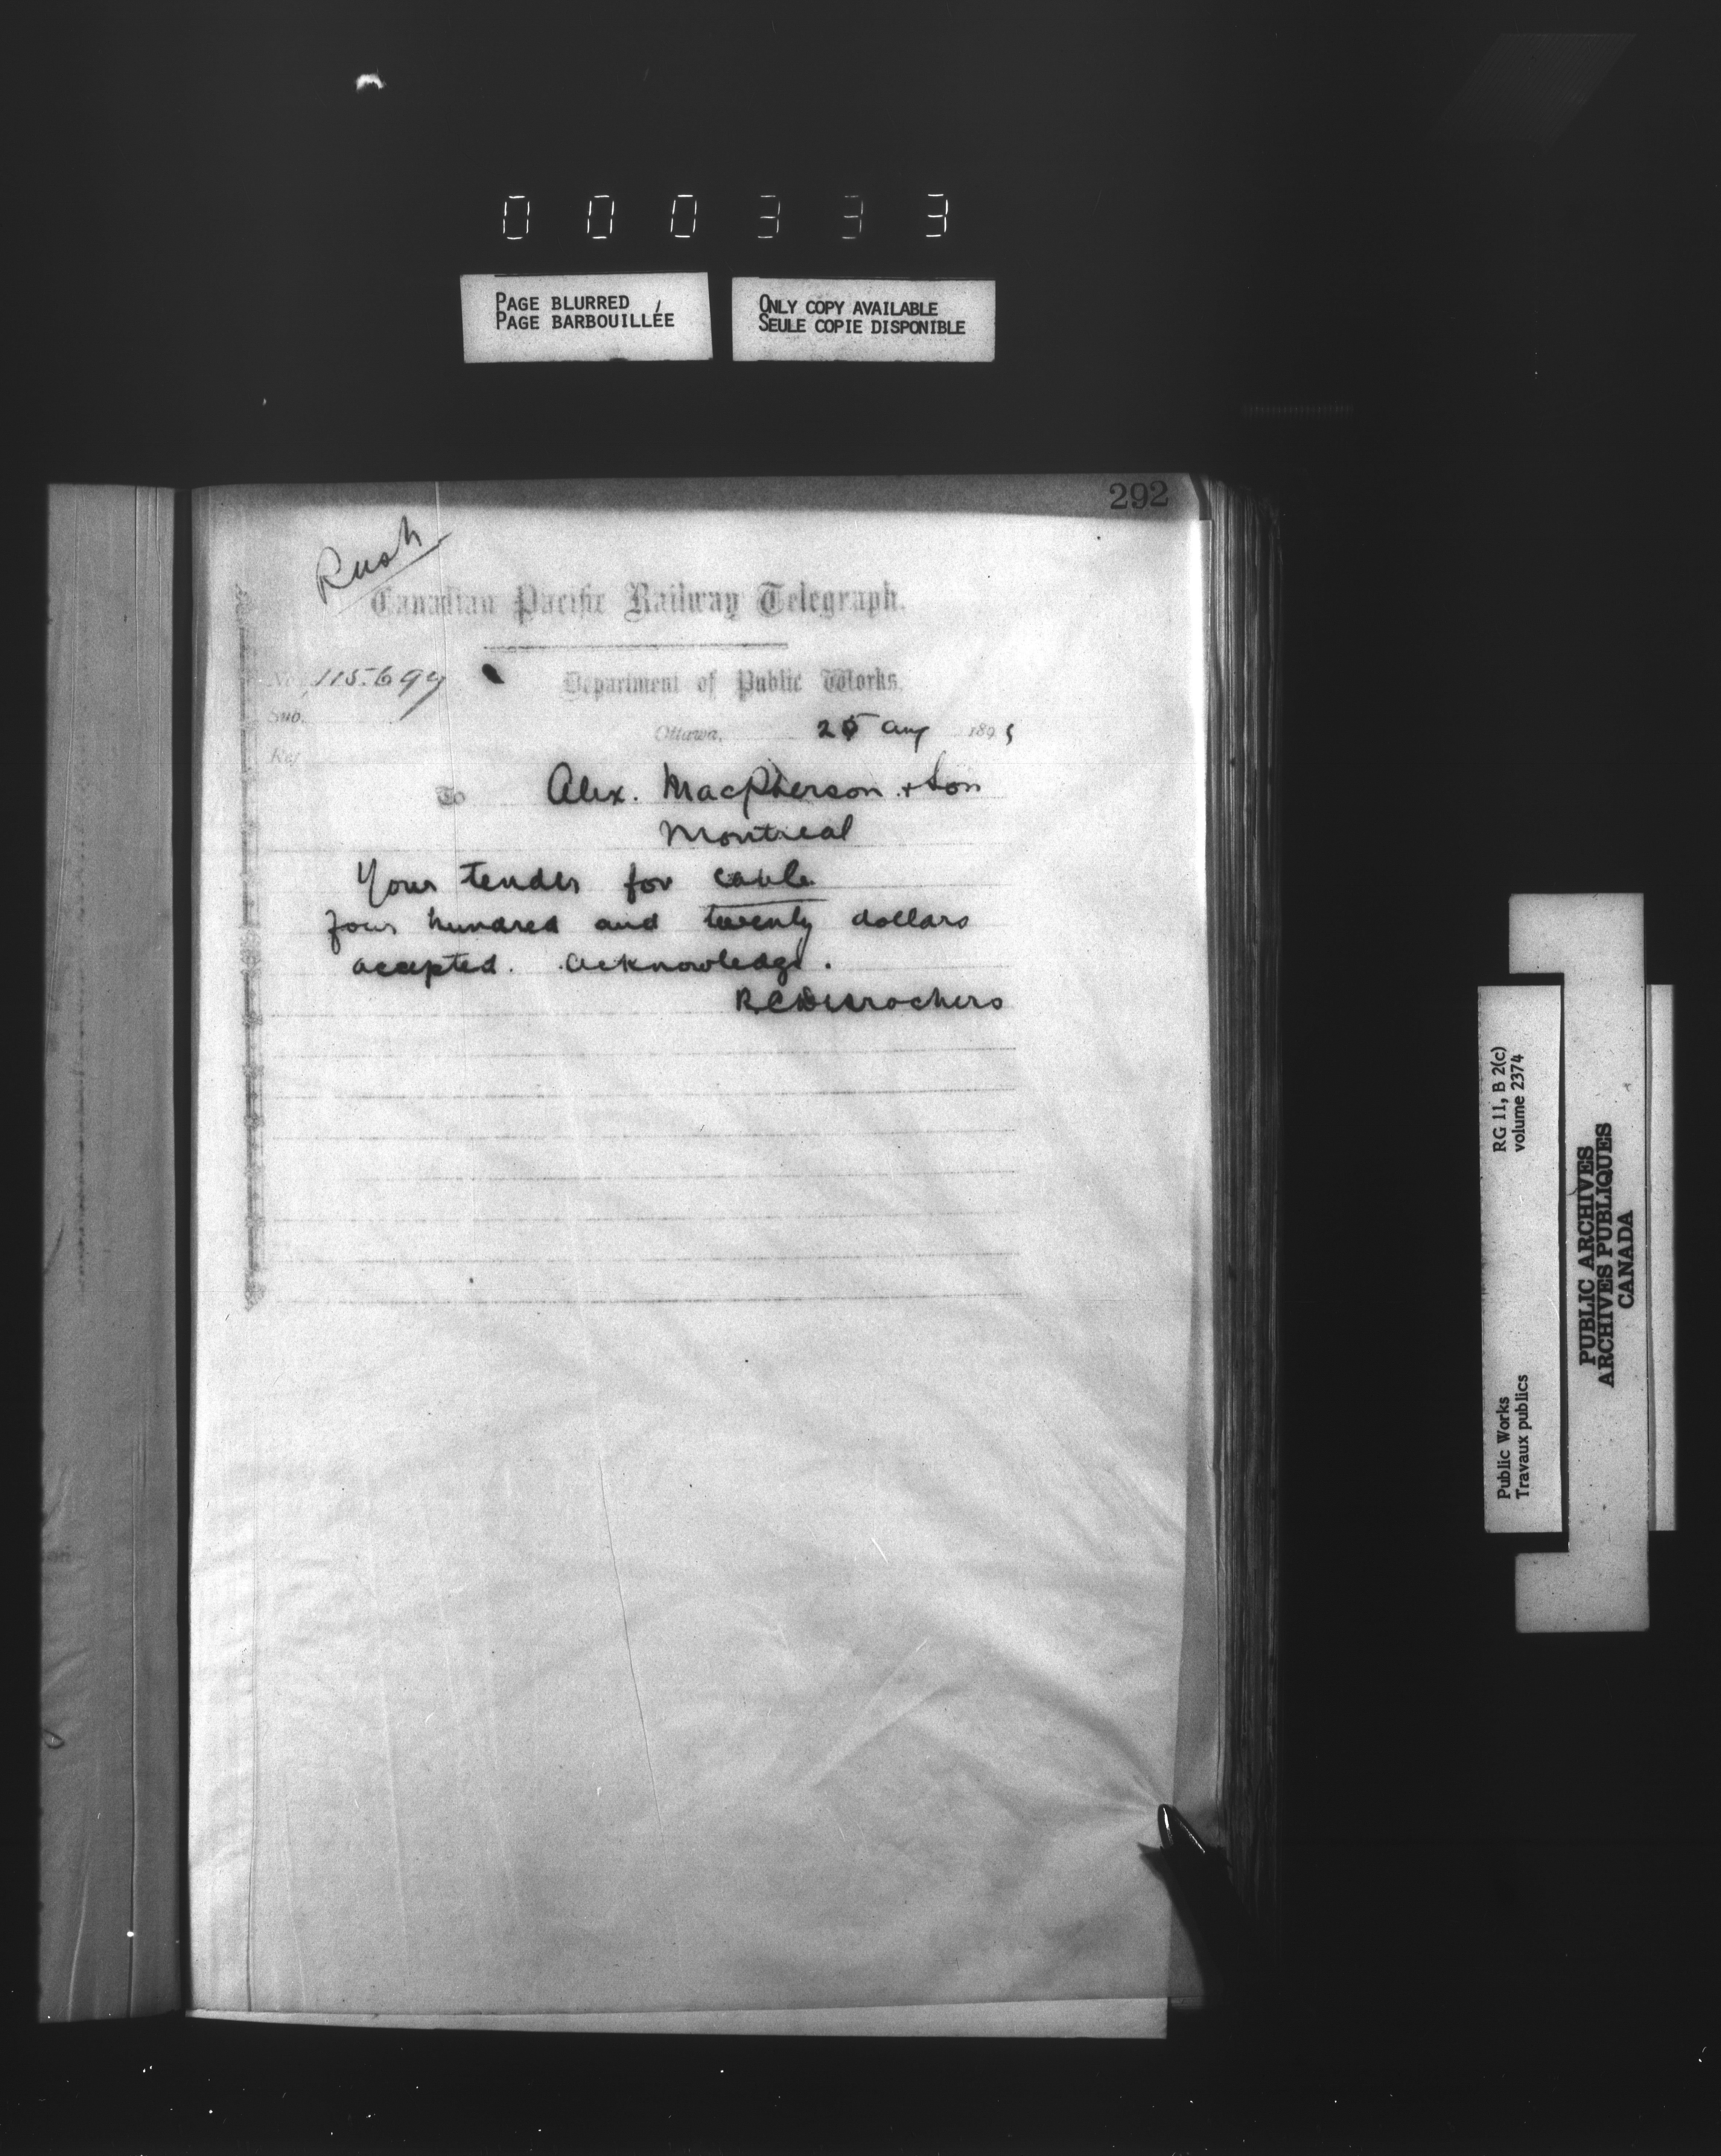 000333
PAGE BLURRED
PAGE BARBOUILLÉE
ONLY COPY AVAILABLE
SEULE COPIE DISPONIBLE
292
Rush
Canadian Pacific Railway Telegraph.
No. 115.694
Department of Public Works.
Sub.
Ottawa, 25 Aug 1895
Ref
To Alex. MacPherson & Son
Montreal
Your tender for cable
four hundred and twenty dollars
accepted. acknowledge.
R.C. Desrochers
RG 11, B 2(c)
volume 2374
Public Works
Travaux publics
PUBLIC ARCHIVES
ARCHIVES PUBLIQUES
CANADA